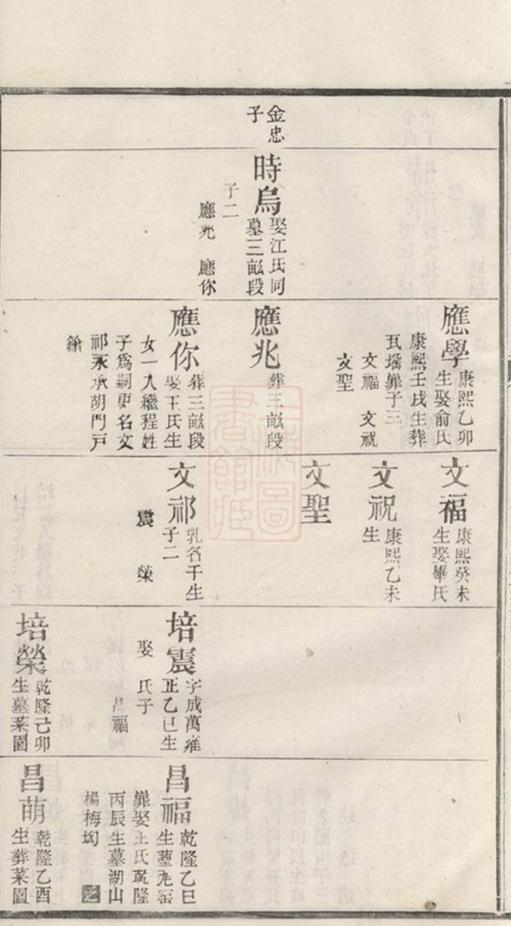 金忠
子
時烏
娶江氏同
墓三畝段
子二
應兆 應你
應學
康熙乙卯
生娶俞氏
康熙壬戌生葬
瓦瑤
子三
文福 文祝
文聖
應兆
葬三畝段
應你
葬三畝段
娶王氏生
女一人繼程姓
子爲嗣更名文
祁永承胡門戶
文福
康熙癸未
生娶畢氏
文祝
康熙乙未
生
文聖
文祁
乳名千生
子二
震 榮
培震
字成萬雍
正乙巳生
娶 氏子
昌福
培榮
乾隆己卯
生墓菜園
昌福
乾隆乙巳
娶王氏乾隆
丙辰生墓湖山
楊梅㘭
昌萌
乾隆乙酉
生葬菜園